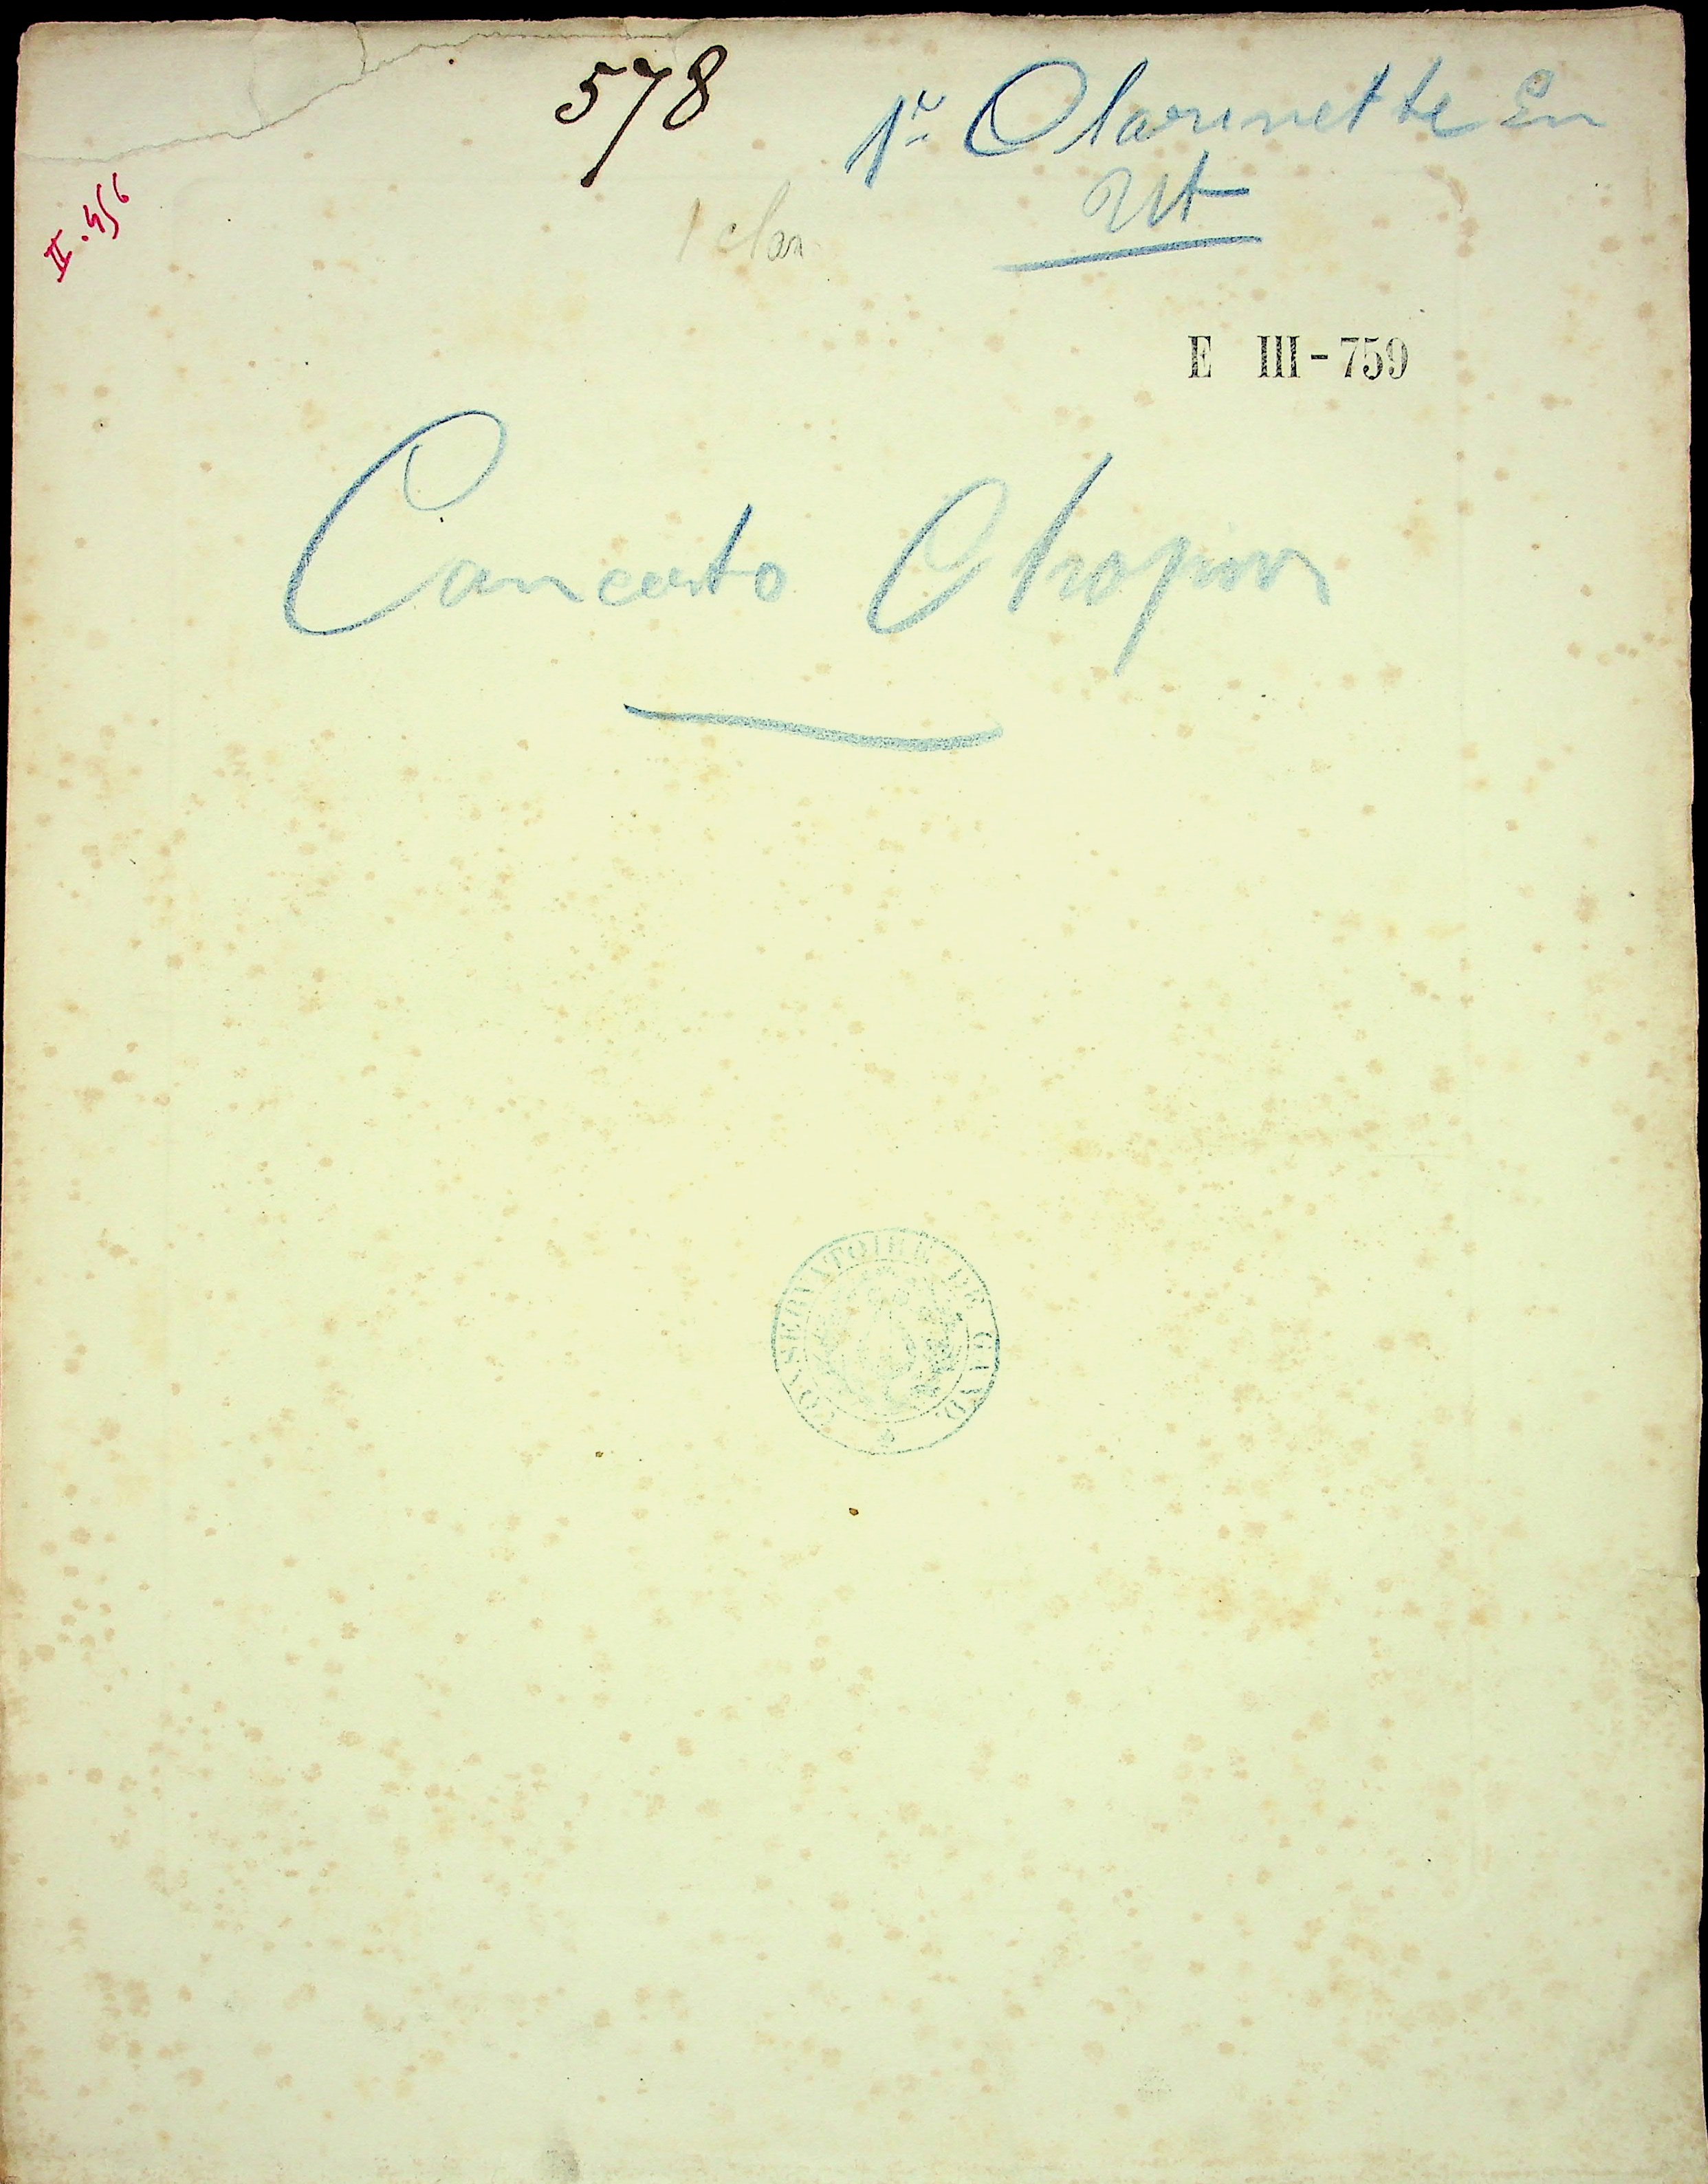 578
1r Clarinette en
Ut
II.456
1 clar
E III-759
Concerto Chopin
CONSERVATOIRE DE GAND.